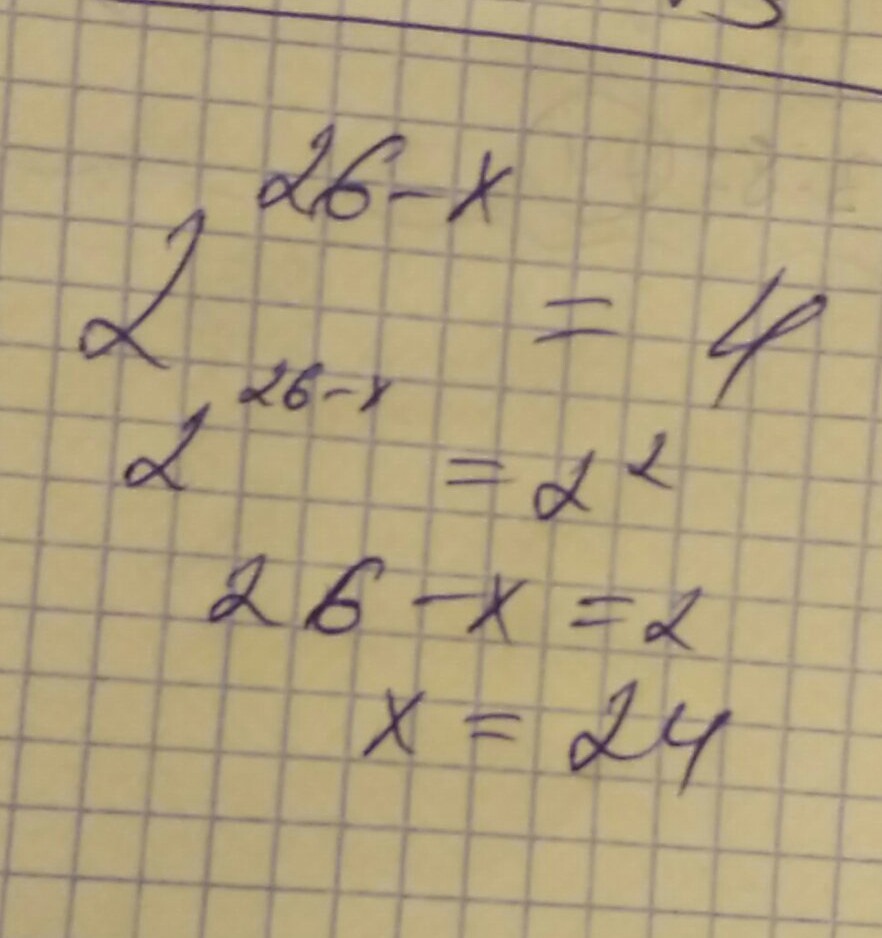 2^{26-x} = 4
2^{26-x} = 2^2
26 - x = 2
x = 24